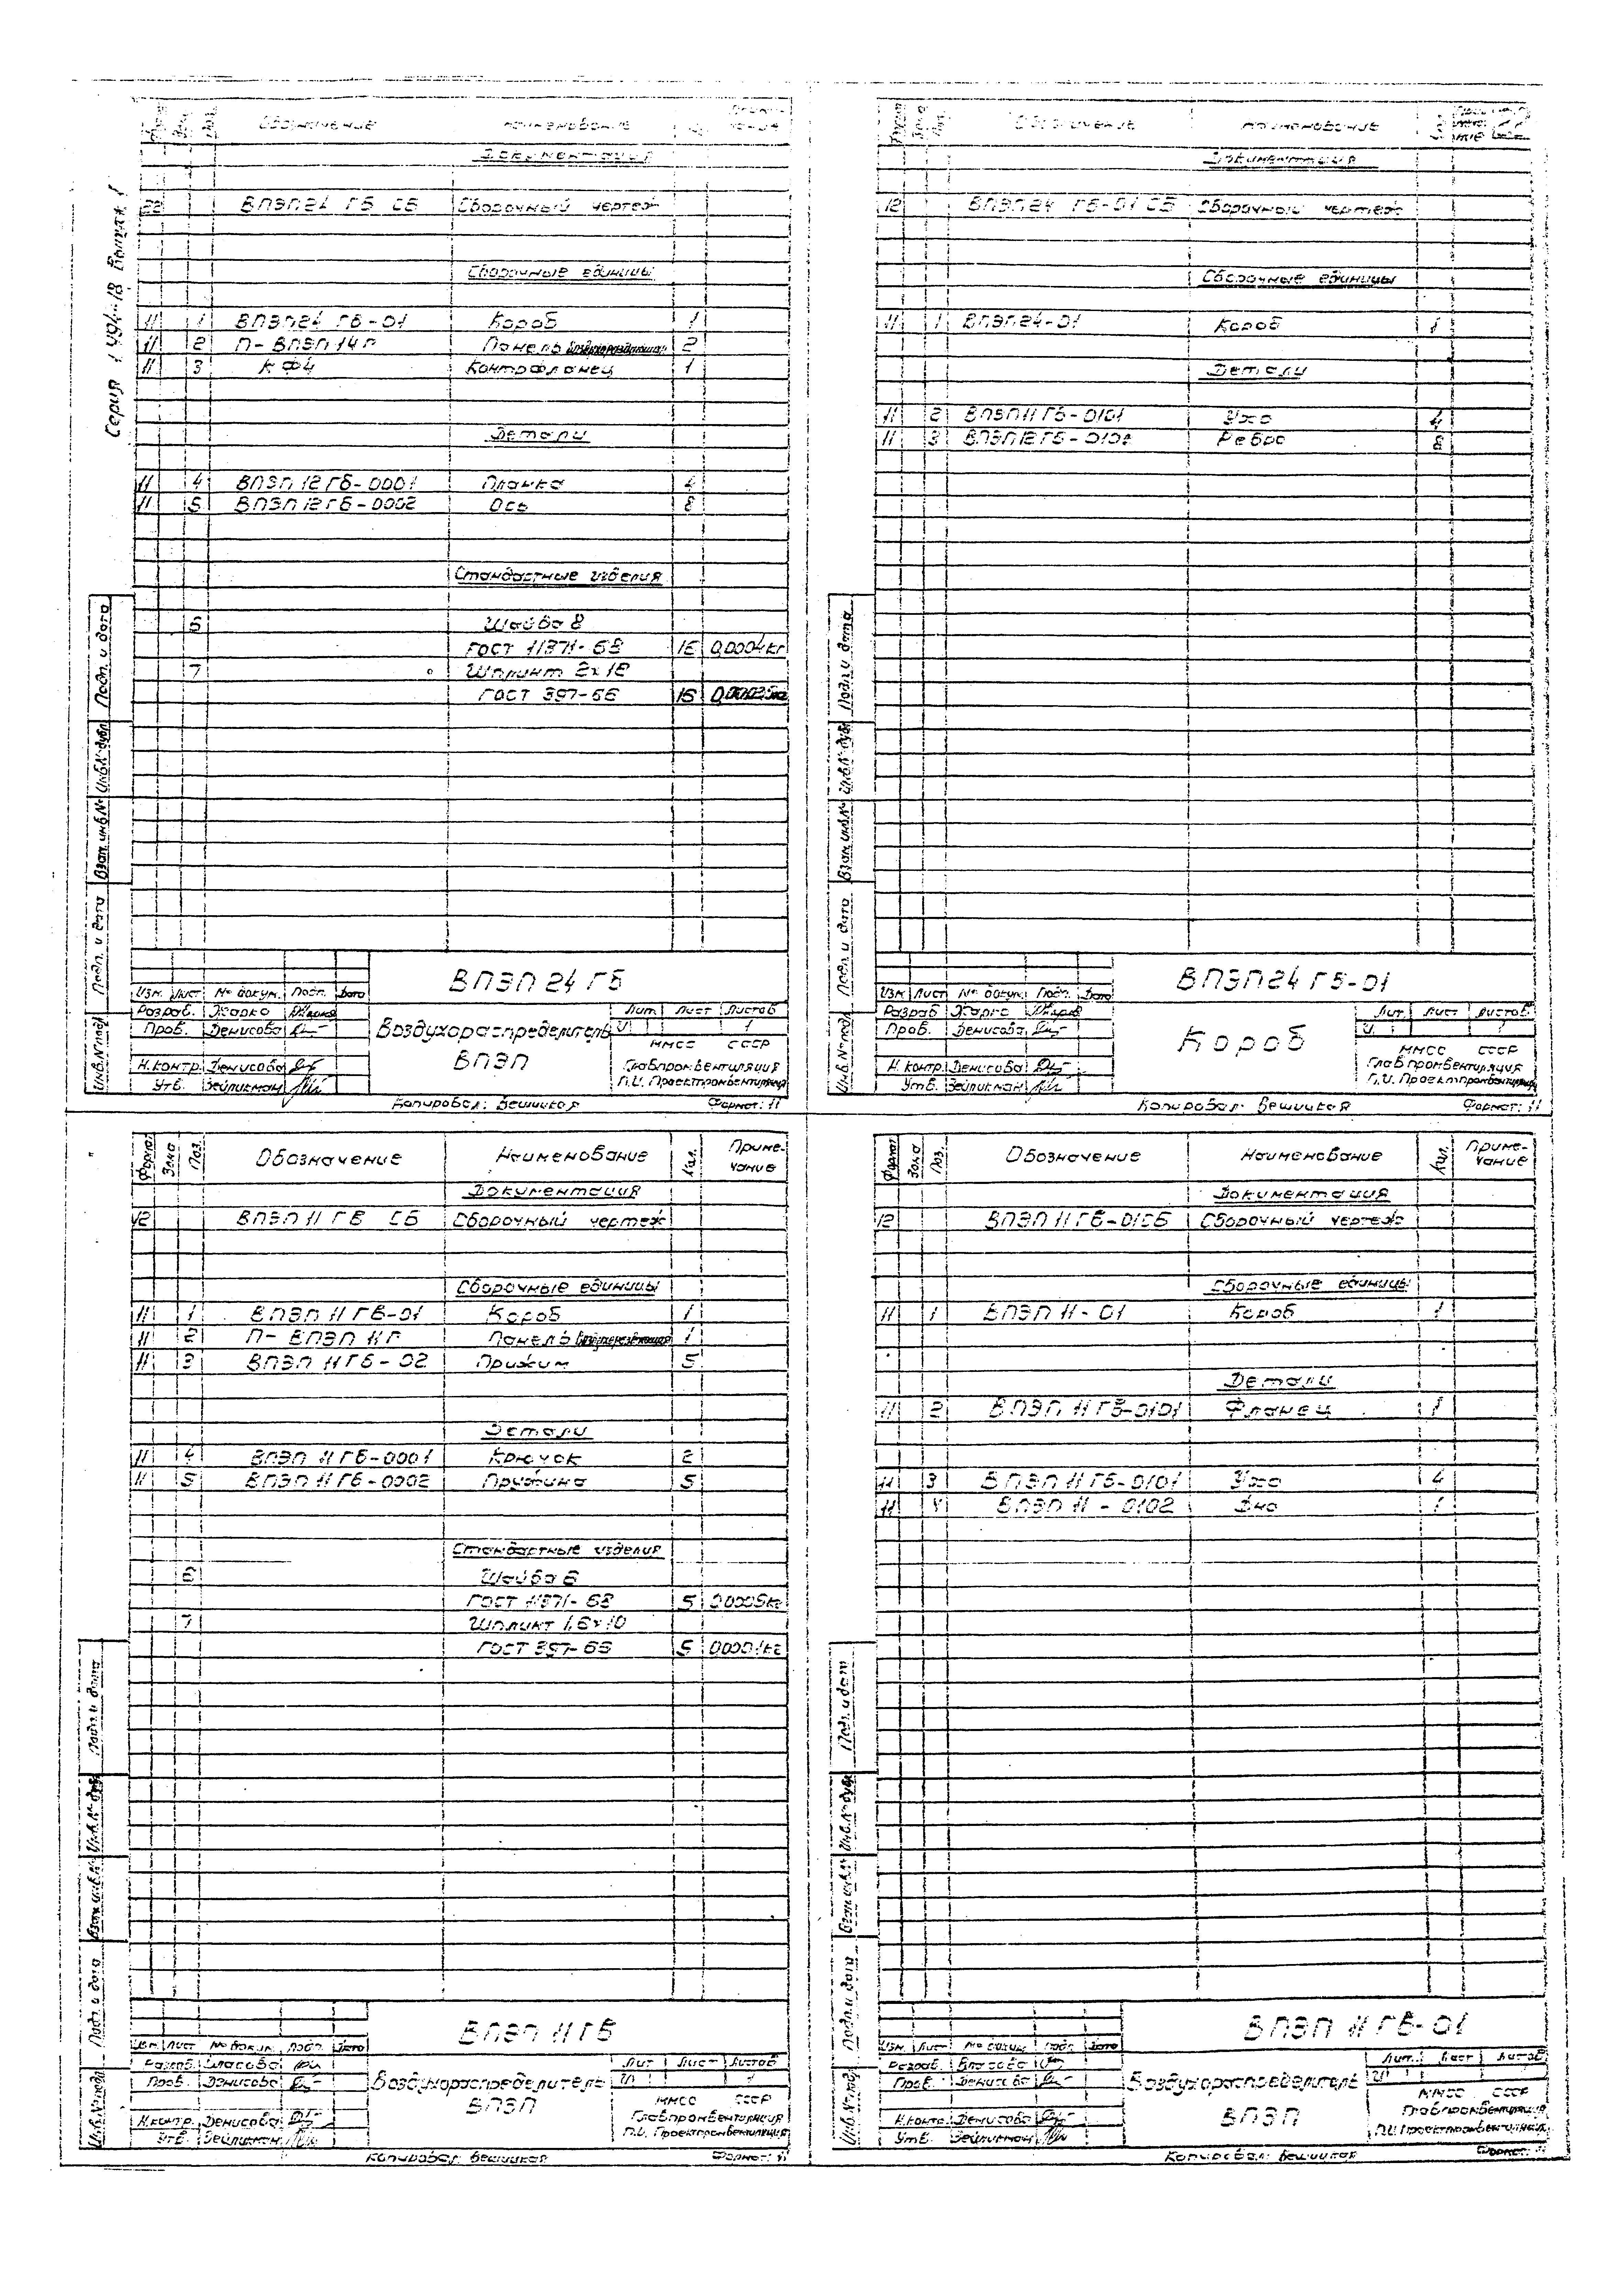 Серия 1.494-18 Выпуск 1
Обозначение Наименование
Документация
22 ВПЭП24 ГБ СБ Сборочный чертеж
Сборочные единицы
11 1 ВПЭП24 ГБ-01 Короб 1
11 2 П-ВПЭП 14 П Панель 2
11 3 КФ4 Контрфланец 1
Детали
11 4 ВПЭП 12 ГБ-0001 Планка 4
11 5 ВПЭП 12 ГБ-0002 Ось 8
Стандартные изделия
6 Шайба 8
ГОСТ 11371-68 16 0,0004кг
7 Шплинт 2х12
ГОСТ 397-66 16
Инв.№подл. Подп. и дата Взам. инв.№ Инв.№дубл. Подп. и дата
ВПЭП 24 ГБ
Изм. Лист № докум. Подп. Дата
Разраб. Жарко
Пров. Денисова
Н.контр. Денисова
Утв. Зейликман
Воздухораспределитель
ВПЭП
Лит. Лист Листов
И 1
ММСС СССР
Главпромвентиляция
П.И. Проектпромвентиляция
Копировал: Вешицкая Формат: 11
Обозначение Наименование
Документация
12 ВПЭП24 ГБ-01 СБ Сборочный чертеж
Сборочные единицы
11 1 ВПЭП24-01 Короб 1
Детали
11 2 ВПЭП11 ГБ-0101 Ухо 4
11 3 ВПЭП12 ГБ-0101 Ребро 8
Инв.№подл. Подп. и дата Взам. инв.№ Инв.№дубл. Подп. и дата
ВПЭП24 ГБ-01
Изм. Лист № докум. Подп. Дата
Разраб. Жарко
Пров. Денисова
Н.контр. Денисова
Утв. Зейликман
Короб
Лит. Лист Листов
И 1
ММСС СССР
Главпромвентиляция
П.И. Проектпромвентиляция
Копировал: Вешицкая Формат: 11
Формат Зона Поз. Обозначение Наименование Кол. Приме-
чание
Документация
12 ВПЭП 11 ГБ СБ Сборочный чертеж
Сборочные единицы
11 1 ВПЭП 11 ГБ-01 Короб 1
11 2 П- ВПЭП 11 Г Панель 1
11 3 ВПЭП 11 ГБ-02 Прижим 5
Детали
11 4 ВПЭП 11 ГБ-0001 Крючок 2
11 5 ВПЭП 11 ГБ-0002 Пружина 5
Стандартные изделия
6 Шайба 6
ГОСТ 11371-68 5
7 Шплинт 1,6х10
ГОСТ 397-66 5
Инв.№подл. Подп. и дата Взам. инв.№ Инв.№дубл. Подп. и дата
ВПЭП 11 ГБ
Изм. Лист № докум. Подп. Дата
Разраб. Власова
Пров. Денисова
Н.контр. Денисова
Утв. Зейликман
Воздухораспределитель
ВПЭП
Лит Лист Листов
И 1
ММСС СССР
Главпромвентиляция
П.И. Проектпромвентиляция
Копировал: Вешицкая Формат: 11
Формат Зона Поз. Обозначение Наименование Кол. Приме-
чание
Документация
12 ВПЭП 11 ГБ-01СБ Сборочный чертеж
Сборочные единицы
11 1 ВПЭП 11-01 Короб 1
Детали
11 2 ВПЭП 11 ГБ-0101 Фланец 1
11 3 ВПЭП 11 ГБ-0101 Ухо 4
11 4 ВПЭП 11 - 0102 Дно 1
Инв.№подл. Подп. и дата Взам. инв.№ Инв.№дубл. Подп. и дата
ВПЭП 11 ГБ-01
Изм. Лист № докум. Подп. Дата
Разраб. Власова
Пров. Денисова
Н.контр. Денисова
Утв. Зейликман
Воздухораспределитель
ВПЭП
Лит. Лист Листов
И
ММСС СССР
Главпромвентиляция
П.И. Проектпромвентиляция
Копировал: Вешицкая Формат: 11